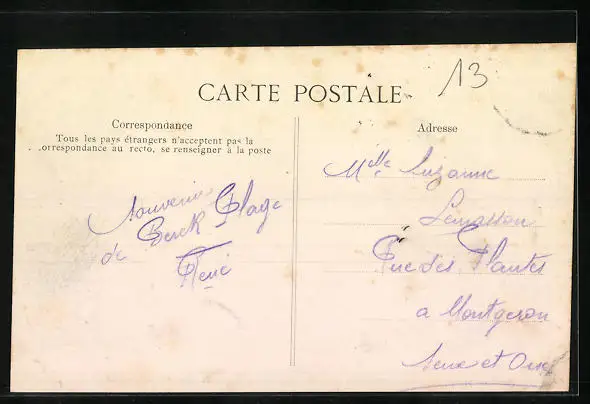 13
CARTE POSTALE
Correspondance
Tous les pays étrangers n'acceptent pas la
orrespondance au recto, se renseigner à la poste
Adresse
Souvenir
de Berck Plage
René
Melle Suzanne
Lemasson
Rue des Plantes
a Montgeron
Seine et Oise